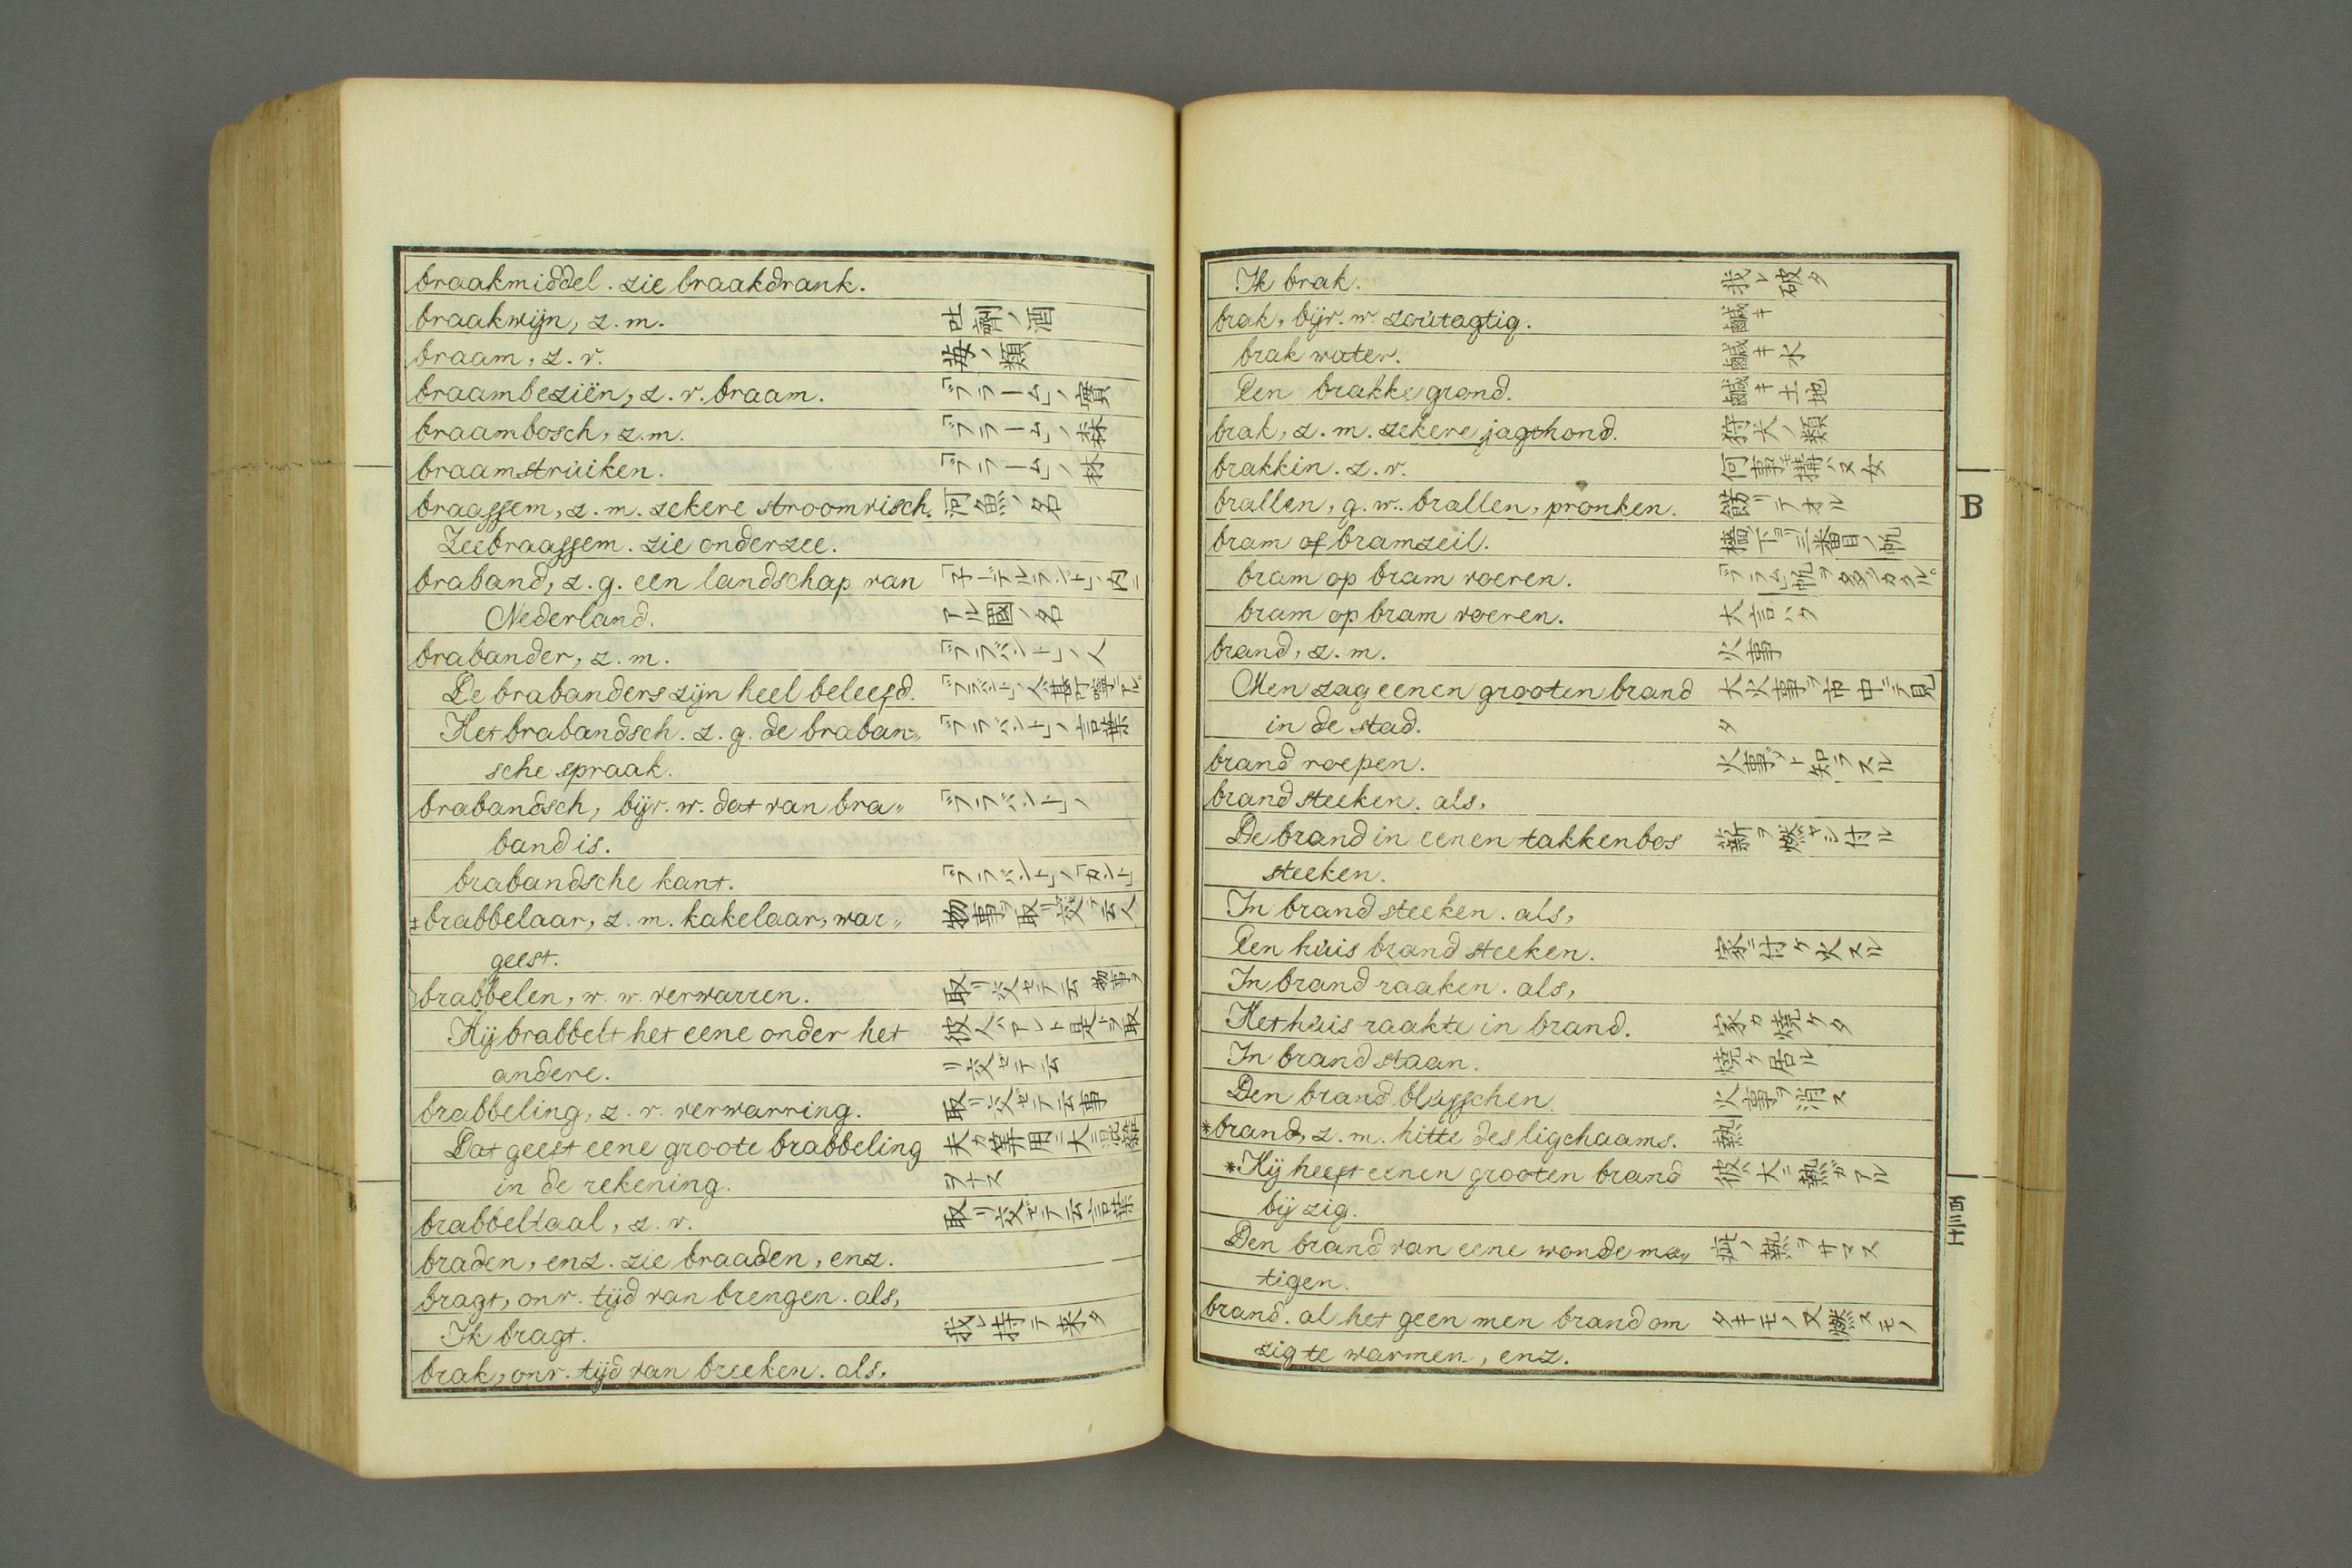 braakmiddel. zie braakdrank.
braakwijn, z. m. 吐劑ノ酒
braam, z. v. 苺ノ類
braambeziën, z. v. braam. 「ブラーム」ノ實
braambosch, z. m. 「ブラーム」ノ森
braamstruiken. 「ブラーム」ノ林
braassem, z. m. zekere stroomvisch. 河魚ノ名
Zeebraassem. zie onder zee.
braband, z. g. een landschap van 「子ーデルランド」ノ内ニ
Nederland. アル國ノ名
brabander, z. m. 「ブラバント」ノ人
De brabanders zijn heel beleefd. 「ブラバント」ノ人甚丁寧テアル。
Het brabandsch. z. g. de braban„ 「ブラバント」ノ言葉
sche spraak.
brabandsch, bijv. w. dat van bra„ 「ブラバント」ノ
band is.
brabandsche kant. 「ブラバント」ノ「カント」
‡brabbelaar, z. m. kakelaar, war„ 物事ヲ取リ交セテ云人
geest.
brabbelen, w. w. verwarren. 取リ交セテ云 物事ヲ
Hij brabbelt het eene onder het 彼人ハアレト是トヲ取
andere. リ交セテ云
brabbeling, z. v. verwarring. 取リ交セテ云事
Dat geeft eene groote brabbeling 夫カ算用ニ大ニ混雑
in de rekening. ヲナス
brabbeltaal, z. v. 取リ交セテ云言葉
braden, enz. zie braaden, enz.
bragt, onv. tijd van brengen. als,
Ik bragt. 我レ持テ来タ
brak, onv. tijd van breeken. als,
Ik brak. 我レ破タ
brak, bijv. w. zoutagtig. 鹹キ
brak water. 鹹キ水
Een brakke grond. 鹹キ土地
brak, z. m. zekere jagthond. 狩犬ノ類
brakkin. z. v. 何事モ構ハヌ女
brallen, g. w. brallen, pronken. 餝リテオル
bram of bramzeil. 檣下ヨリ三番目ノ帆
bram op bram voeren. 「ブラム」帆ヲ多クカクル。
bram op bram voeren. 大言ハク
brand, z. m. 火事
Men zag eenen grooten brand 大火事ヲ市中ニテ見
in de stad. タ
brand roepen. 火事ト知ラスル
brand steeken. als,
De brand in eenen takkenbos 薪ヲ燃ヤシ付ル
steeken.
In brand steeken. als,
Een huis brand steeken. 家ニ付ケ火スル
In brand raaken. als,
Het huis raakte in brand. 家カ焼ケタ
In brand staan. 焼ケ居ル
Den brand blusschen. 火事ヲ消ス
*brand, z. m. hitte des ligchaams. 熱
*Hij heeft eenen grooten brand 彼ハ大ニ熱ガアル
bij zig.
Den brand van eene wonde ma„ 疵ノ熱ヲサマス
tigen.
brand. al het geen men brand om タキモノ又燃スモノ
zig te warmen, enz.
B
百三十